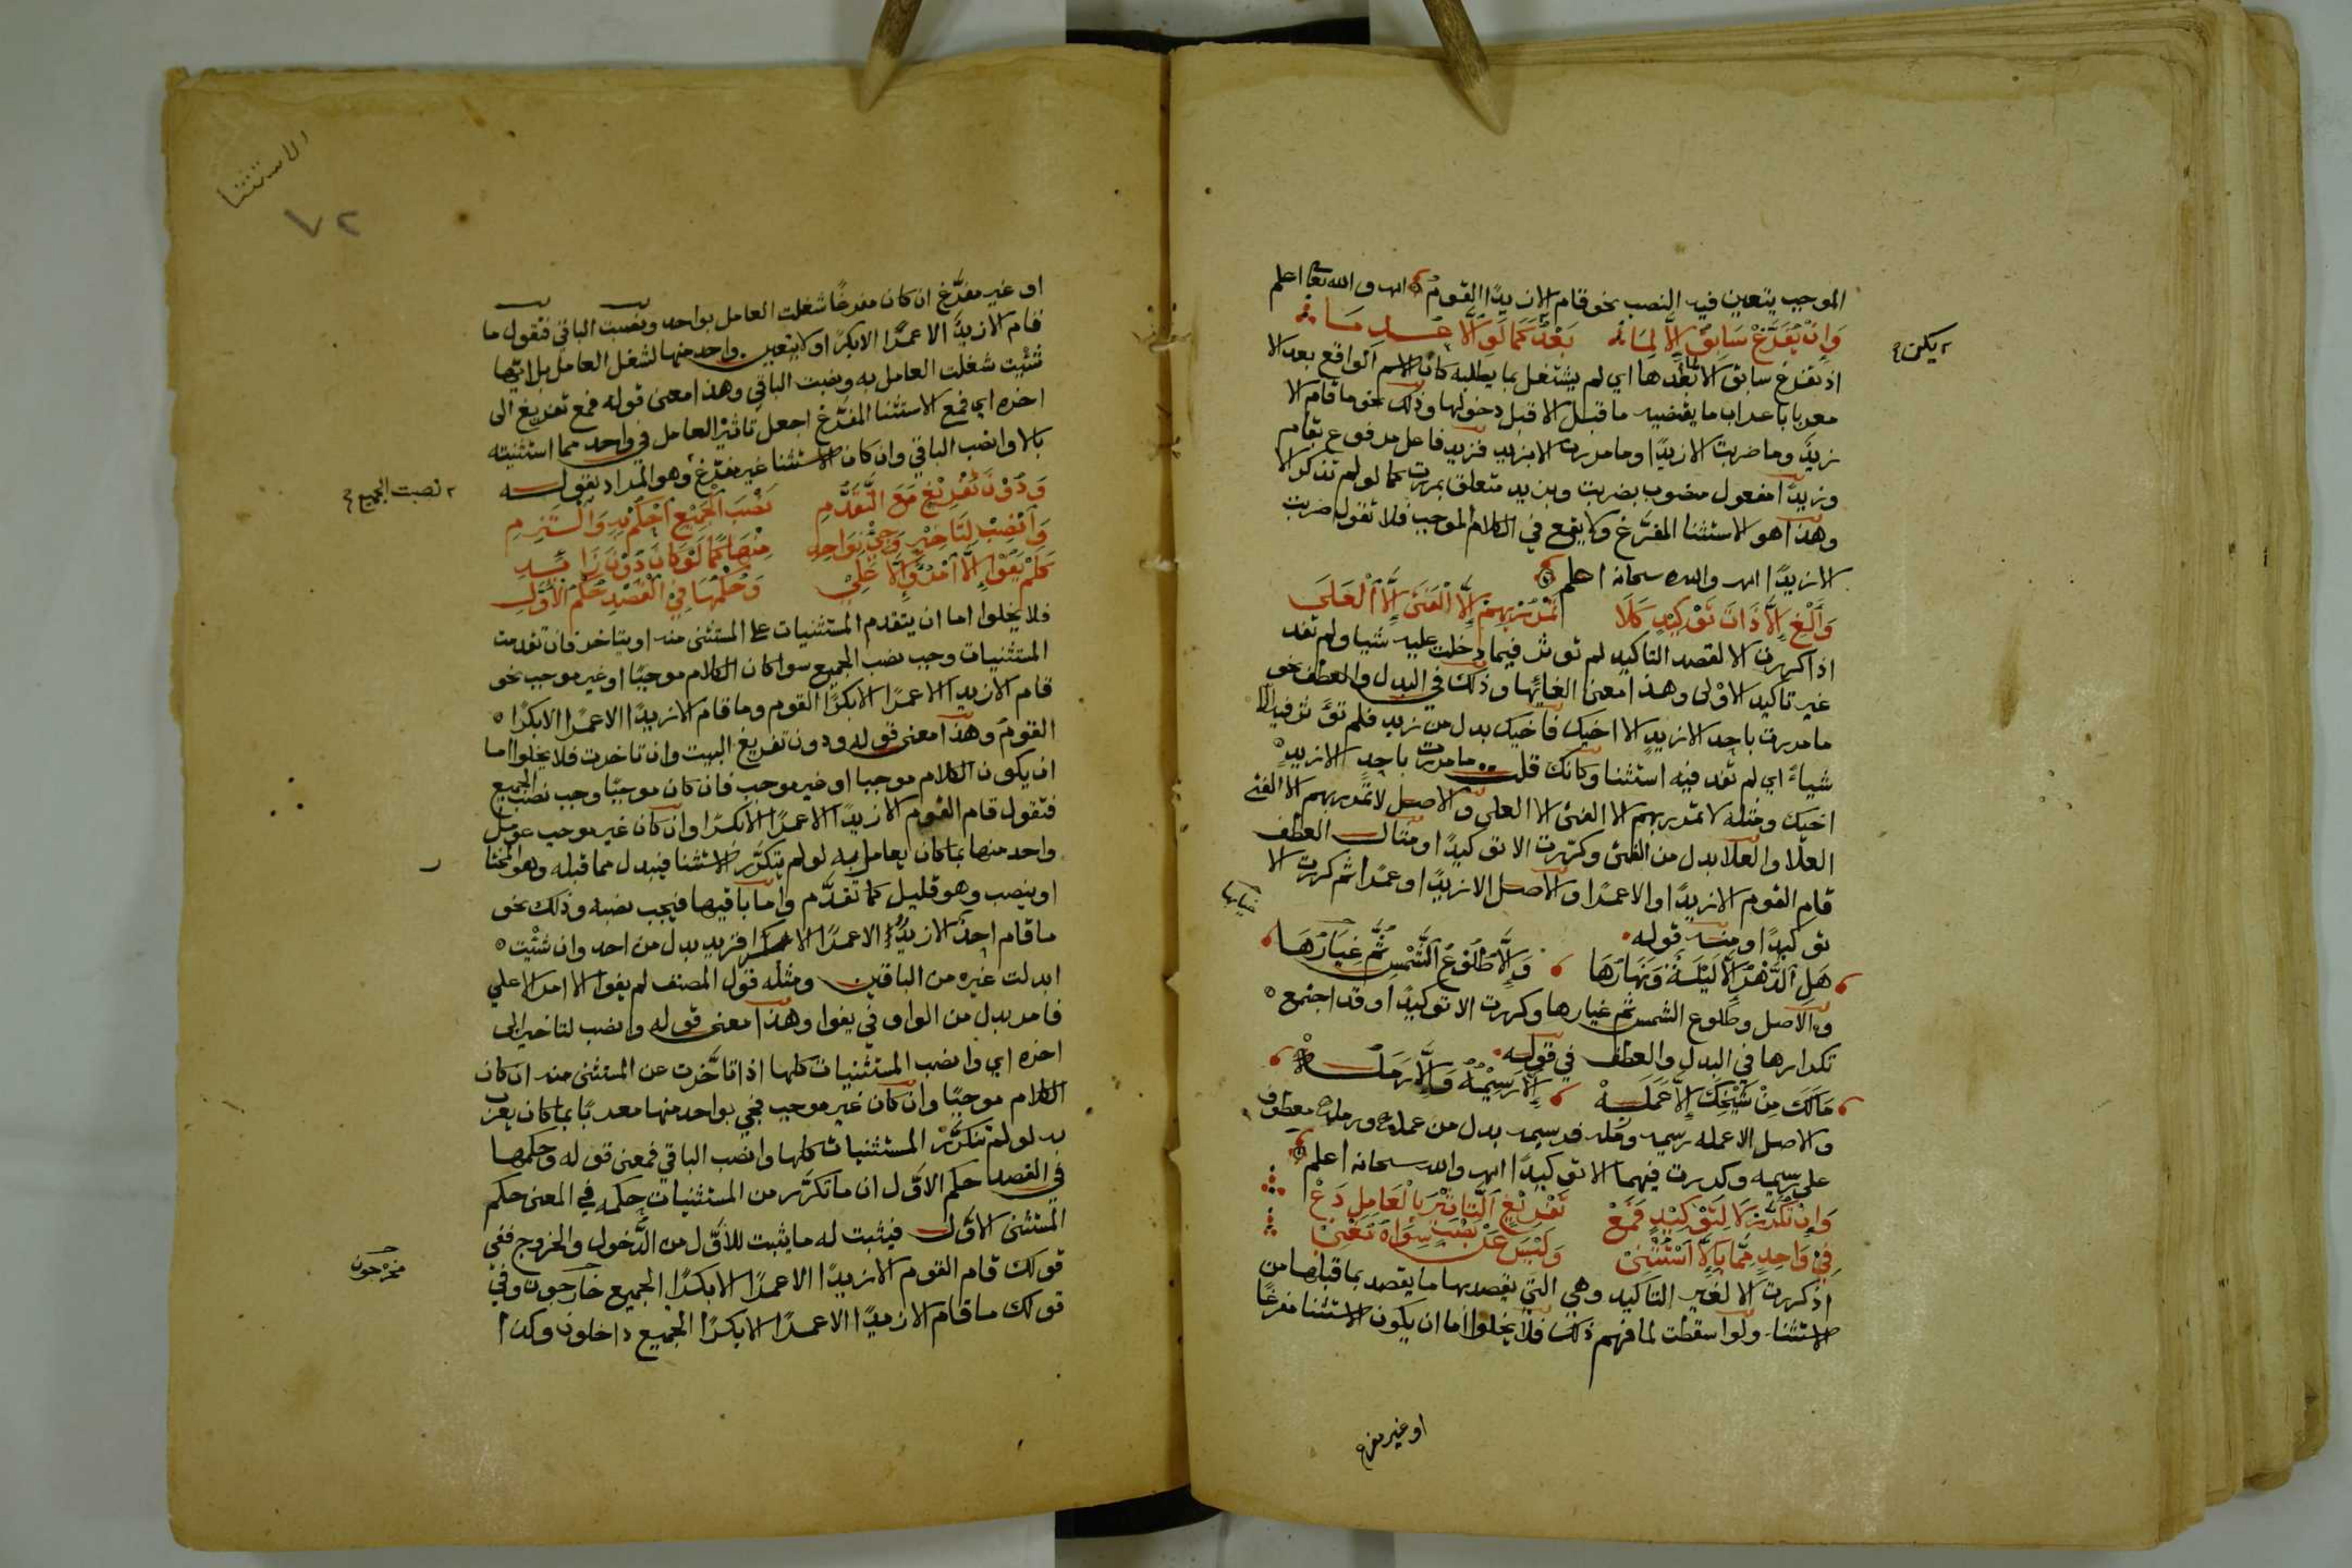 الموجب يتعين فيه النصب نحو قام الا زيدًا القوم اهـ والله تعالى اعلم
وَإِنْ يُفَرَّغْ سَابِقٌ إِلَّا لِمَا بَعْدُ يَكُنْ كَمَا لَوِ الَّا عُدِمَا
يكن
اذ تفرغ سابق الا لما بعدها اي لم يشتغل بما يطلبه كان الاسم الواقع بعد الا
معربا باعراب ما يقتضيه ما قبل الا قبل دخولها وذلك نحو ما قام الا
زيدٌ وما ضربت الا زيدًا وما مررت الا بزيد فزيد فاعل مرفوع بقام
وزيدًا مفعول منصوب بضربت وبزيد متعلق بمررت كما لو لم تذكر الا
وهذا هو الاستثنا المفرَّغ ولا يقع في الكلام الموجب فلا تقول ضربت
الا زيدًا اهـ والله سبحانه اعلم
وَأَلْغِ إِلَّا ذَاتَ تَوْكِيدٍ كَلَا تَمْرُرْ بِهِمْ إِلَّا الْفَتَى إِلَّا الْعَلَى
اذا كررت الا لقصد التاكيد لم توثر فيما دخلت عليه شيا ولم تفد
غير تاكيد الاولى وهذا معنى الغائها وذلك في البدل والعطف نحو
ما مررت باحد الا زيدٍ الا اخيك فاخيك بدل من زيد فلم توثر فيه الا
شياءً اي لم تفد فيه استثنا وكانك قلت ما مررت باحدٍ الا زيدٍ
اخيك ومثله لا تمرر بهم الا الفتى الا العلى والاصل لا تمرر بهم الا الفتى
العلا والعلا بدل من الفتى وكررت الا توكيدًا ومثال العطف
قام القوم الا زيدًا والا عمرًا والاصل الا زيدًا وعمرًا ثم كررت الا
توكيدًا ومنه قوله
هَلِ الدَّهْرُ إِلَّا لَيْلَةٌ وَنَهَارُهَا وَإِلَّا طُلُوعُ الشَّمْسِ ثُمَّ غِيَارُهَا
والاصل وطلوع الشمس ثم غيارها وكررت الا توكيدًا وقد اجتمع
تكرارها في البدل والعطف في قوله
مَالَكَ مِنْ شَيْخِكَ إِلَّا عَمَلُهْ إِلَّا رَسِيْمُهُ وَإِلَّا رَمَلُهْ
والاصل الا عمله رسيمه ورمله فرسيمه بدل من عمله ورمله معطوف
على رسيمه وكررت فيهما الا توكيدًا اهـ والله سبحانه اعلم
وَإِنْ تُكَرَّرْ لَا لِتَوْكِيْدٍ فَمَعْ تَفْرِيْغٍ التَّاثِيْرَ بِالْعَامِلِ دَعْ
فِيْ وَاحِدٍ مِمَّا بِإِلَّا اسْتُثْنِيْ وَلَيْسَ عَنْ نَصْبِ سِوَاهُ مُغْنِيْ
اذ كررت الا لغير التاكيد وهي التي يقصد بها ما يقصد بما قبلها من
الاستثنا ولو اسقطت لما فهم ذلك فلا يخلوا اما ان يكون الاستثنا مفرغًا
او غير مفرغ
الاستثنا
٧٢
او غير مفرَّغ ان كان مفرغًا شغلت العامل بواحد ونصبت الباقي فتقول ما
قام الا زيدٌ الا عمرًا الا بكرًا ولا يتعين واحد منها لشغل العامل بل ايّها
شئت شغلت العامل به ونصبت الباقي وهذا معنى قوله فمع تفريغ الى
اخره اي فمع الاستثنا المفرَّغ اجعل تاثير العامل في واحد مما استثنيته
بالا وانصب الباقي وان كان الاستثنا غير مفرَّغ وهو المراد بقوله
وَدُوْنَ تَفْرِيْغٍ مَعَ التَّقَدُّمِ نَصْبَ الْجَمِيْعِ احْكُمْ بِهِ وَالْتَزِمِ
نصبت الجميع
وَانْصِبْ لِتَاخِيْرٍ وَجِئْ بِوَاحِدِ مِنْهَا كَمَا لَوْ كَانَ دُوْنَ زَائِدِ
كَلَمْ يَفُوْا إِلَّا امْرُؤٌ إِلَّا عَلِيْ وَحُكْمُهَا فِي الْقَصْدِ حُكْمُ الْأَوَّلِ
فلا يخلوا اما ان يتقدم المستثنيات على المستثنى منه او يتاخر فان تقدمت
المستثنيات وجب نصب الجميع سوا كان الكلام موجبًا او غير موجب نحو
قام الا زيدا الا عمرًا الا بكرًا القوم وما قام الا زيدًا الا عمرًا الا بكرًا
القوم وهذا معنى قوله ودون تفريغ البيت وان تاخرت فلا يخلوا اما
ان يكون الكلام موجبا او غير موجب فان كان موجبًا وجب نصب الجميع
فتقول قام القوم الا زيدًا الا عمرًا الا بكرًا وان كان غير موجب عومل
واحد منها بما كان يعامل به لو لم يتكرَّر الاستثنا فيبدل مما قبله وهو المختا
ر
او ينصب وهو قليل كما تقدَّم واما باقيها فيجب نصبه وذلك نحو
ما قام احدٌ الا زيدٌ الا عمرًا الا بكرًا فزيد بدل من احد وان شئت
ابدلت غيره من الباقين ومثله قول المصنف لم يفوا الا امرا الا علي
فامر بدل من الواو في يفوا وهذا معنى قوله وانصب لتاخير الى
اخره اي وانصب المستثنيات كلها اذا تاخَّرت عن المستثنى منه ان كان
الكلام موجبًا وان كان غير موجب فجي بواحد منها معربًا بما كان يعرب
به لو لم تتكرَّر المستثنيات كلها وانصب الباقي فمعنى قوله وحكمها
في القصد حكم الاوَّل ان ما تكرَّر من المستثنيات حكمه في المعنى حكم
المستثنى الاوّل فيثبت له ما يثبت للاوَّل من الدُّخول والخروج ففي
قولك قام القوم الا زيدًا الا عمرًا الا بكرًا الجميع خارجون وفي
مخرجون
قولك ما قام الا زيدًا الا عمرًا الا بكرًا الجميع داخلون وكذا